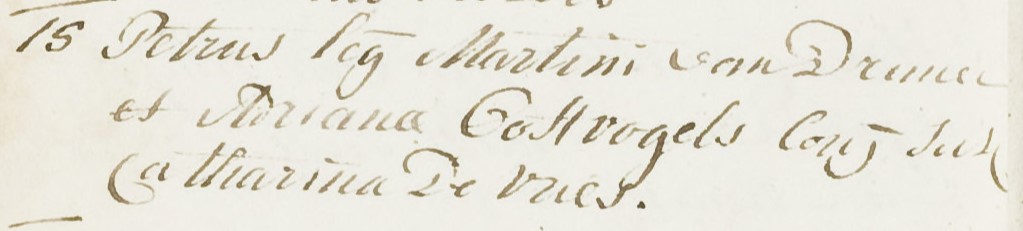 15 Petrus leg Martini van Drunen
et Adriana Costvogels Conj Sus
Catharina De Vries.